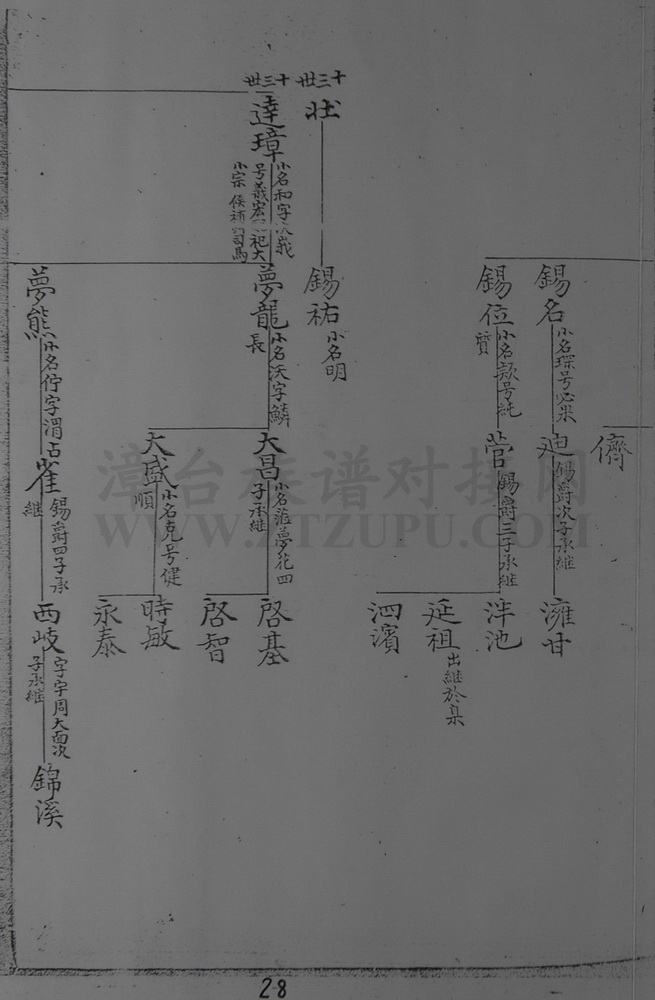 儕
錫名
小名琛号必米
迎
錫爵次子承継
濰甘
錫位
小名款号純
質
营
錫爵三子承継
泮池
延祖
出継於臬
泗濱
十三世
壯
錫祐
小名明
十三世
達璋
小名和字
号義宏 祀大
小宗 候補 司馬
夢龍
小名沃字鱗
長
大昌
夢花四
子承継
啓基
啓智
大盛
小名克号健
順
時敏
永泰
夢熊
小名佇字渭占
雀
錫爵四子承
継
西岐
字宇周大面次
子承継
錦溪
漳台族谱对接网
WWW.ZTZUPU.COM
28